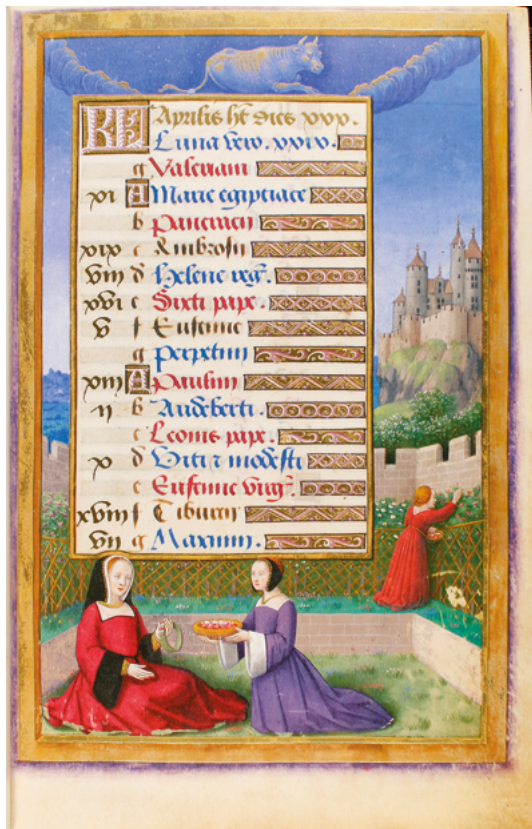 KL Aprilis ht dies xxx.
Luna vero. xxix.
g Valeriani
xi A Marie egiptiace
b Pancracii
xix c Ambrosii
viii d Helene reg.
xvi e Sixti pape.
v f Eufemie
g Perpetuii
xiii A Paulini
ii b Audeberti.
c Leonis pape.
x d Viti z modesti
e Eufemie virg.
xviii f Tiburcii
vii g Maximi.